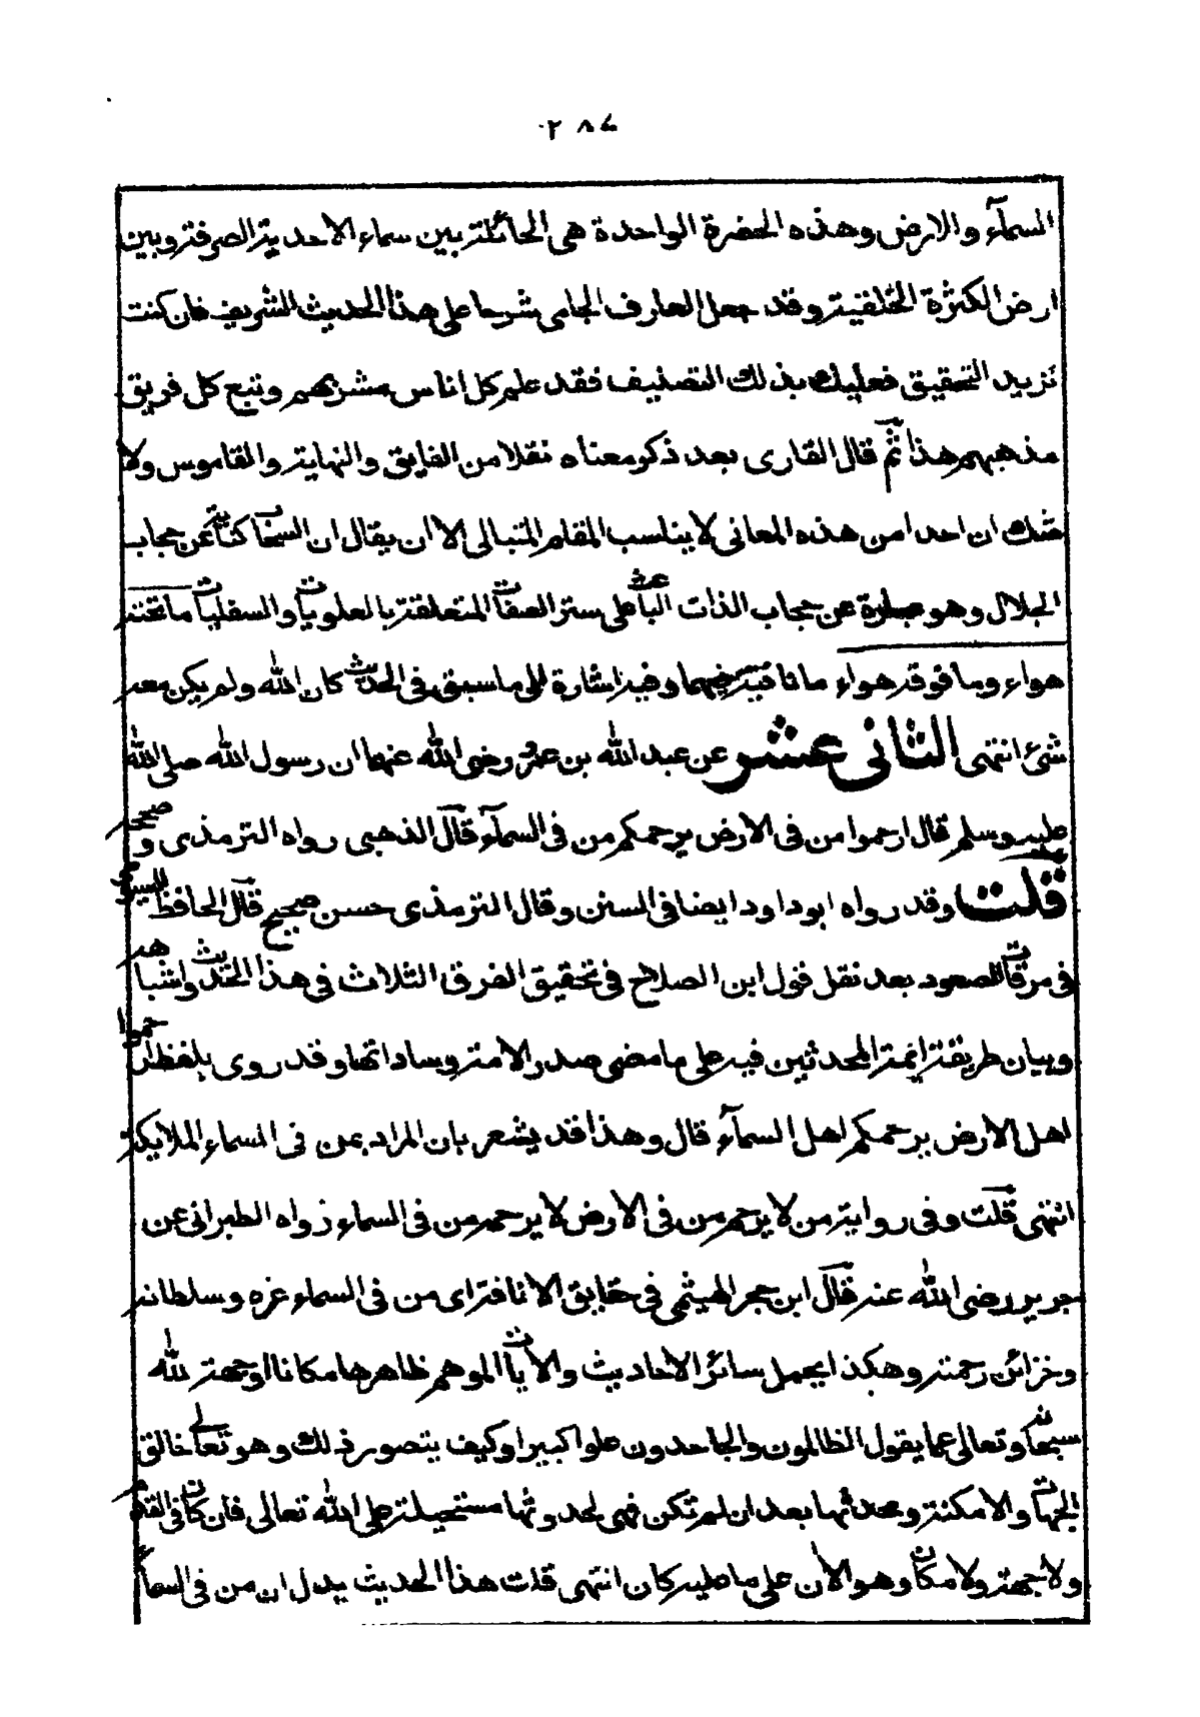 ٢٨٧
السمآء والارض وهذه الحضرة الواحدة هى الحائلة بين سماء الاحدية الصرفة وبين
ارض الكثرة الخلقية وقد جعل العارف الجامى شرحا على هذا الحديث الشريف فان كنت
تزيد التحقيق فعليك بذلك التصنيف فقد علم كل اناس مشربهم وتبع كل فريق
مذهبهم هذا ثم قال القارى بعد ذكر معناه نقلا من الفايق والنهاية والقاموس ولا
شك ان احدا من هذه المعانى لا يناسب المقام المتبالى الا ان يقال ان السحاب كناية عن حجاب
الجلال وهو عبارة عن حجاب الذات الباعث على ستر الصفات المتعلقة بالعلويات والسفليات ما تحته
هواء وما فوقه هواء ما نافية فيهما وفيه اشارة الى ما سبق فى الحديث كان الله ولم يكن معه
شئ انتهى الثانى عشر عن عبد الله بن عمرو رضى الله عنهما ان رسول الله صلى الله
عليه وسلم قال ارحموا من فى الارض يرحمكم من فى السمآء قال الذهبى رواه الترمذى وصححه
قلت وقد رواه ابو داود ايضا فى السنن وقال الترمذى حسن صحيح قال الحافظ السيوطى
فى مرقات الصعود بعد نقل قول ابن الصلاح فى تحقيق الفرق الثلاث فى هذا الحديث واشباهه
وبيان طريقة ائمة المحدثين فيه على ما مضى صدر الامة وساداتها وقد روى بلفظ ارحموا
اهل الارض يرحمكم اهل السمآء قال وهذا قد يشعر بان المراد بمن فى السماء الملايكة
انتهى قلت وفى رواية من لا يرحم من فى الارض لا يرحمه من فى السماء رواه الطبرانى عن
جرير رضى الله عنه قال ابن حجر الهيثمى فى حقايق الانافة اى من فى السماء عزه وسلطانه
وخزائن رحمته وهكذا يحمل سائر الاحاديث والآيات الموهم ظاهرها مكانا او جهة لله
سبحانه وتعالى عما يقول الظالمون والجاحدون علوا كبيرا وكيف يتصور ذلك وهو تعالى خالق
الجهات والامكنة ومحدثها بعد ان لم تكن فهى لحدوثها مستحيلة على الله تعالى فان كان فى القدم
ولا جهة ولا مكان وهو الآن على ما عليه كان انتهى قلت هذا الحديث يدل ان من فى السمآء